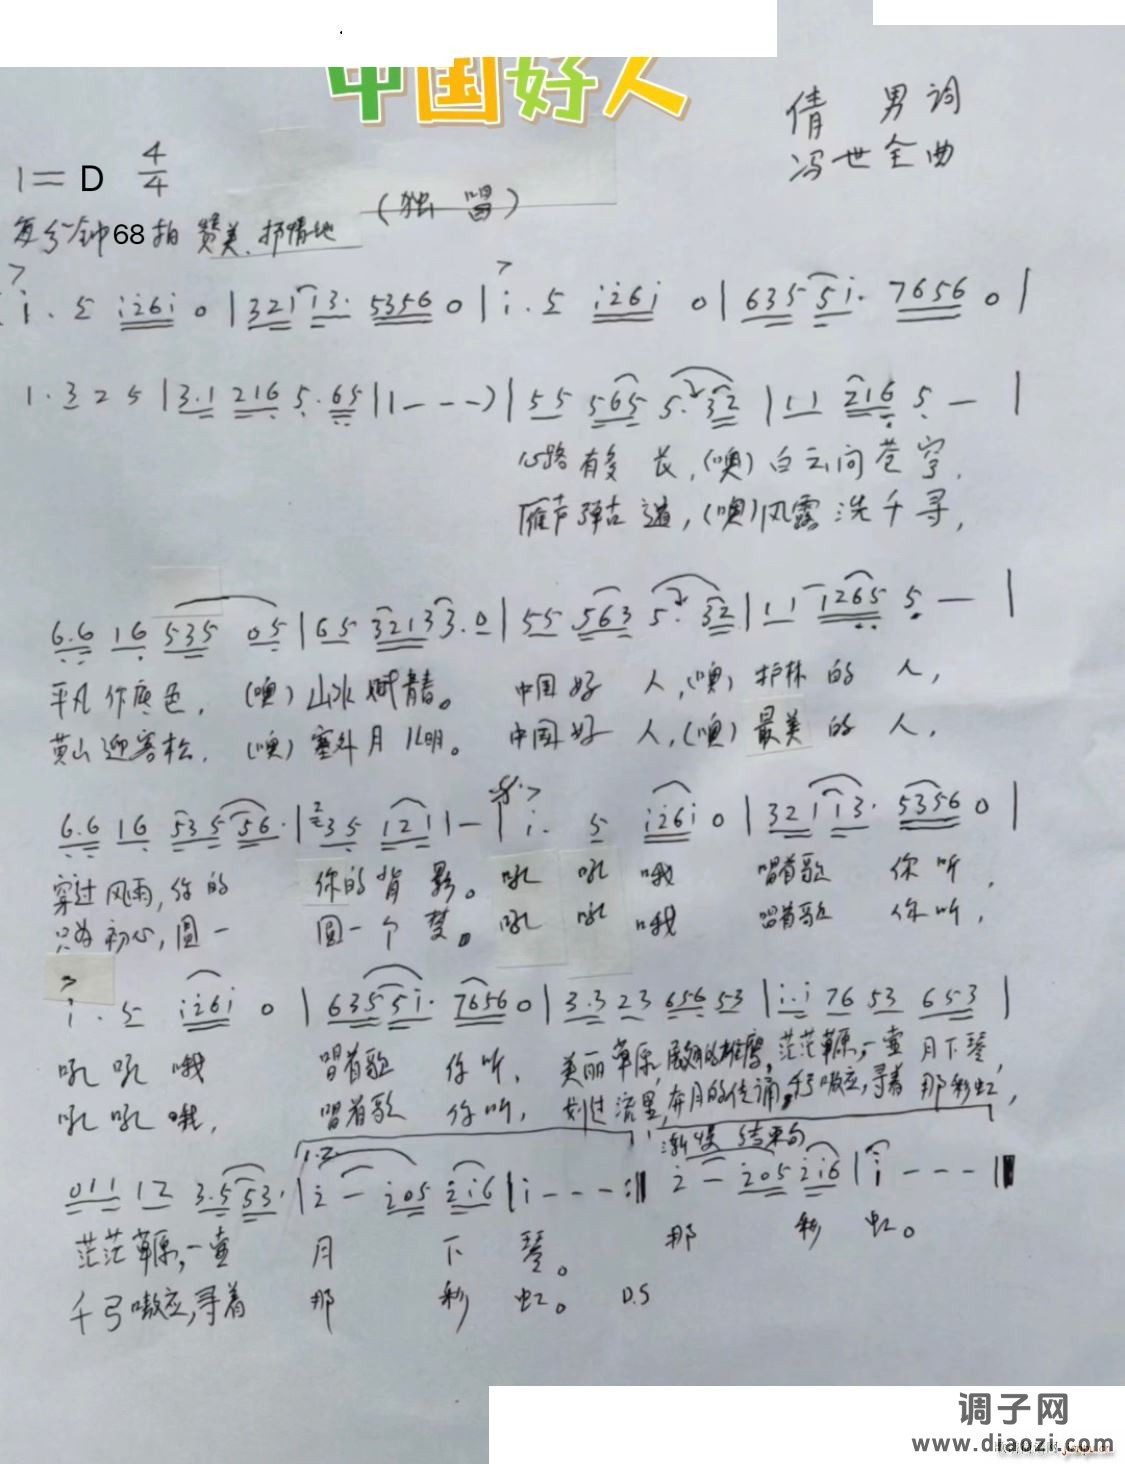 中国好人
倩 男 词
冯世全曲
1=D 4/4
(独 唱)
每分钟68拍 赞美.抒情地
i.5 i26i 0|321 i3. 5356 0|i.5 i26i 0|635 5i. 7656 0|
1.3 2 5|3.1 216 5.65|1---)|55 565 5.32|11 216 5—|
心路有多 长,(噢)白云问苍穹,
雁声弹古道,(噢)风露洗千寻,
6.6 16 535 05|65 32133.0|55 563 5.32|11 1265 5—|
平凡作底色,(噢)山水赋青春。 中国好 人,(噢)护林的 人,
黄山迎客松,(噢)塞外月儿明。 中国好 人,(噢)最美的 人,
6.6 16 535 56.|235 121|—|i. 5 i26i 0|321 i3. 5356 0|
穿过风雨,你的 你的背 影。 吼 吼 哦 唱首歌 你 听,
只为初心,圆一 圆一个 梦。 吼 吼 哦 唱首歌 你听,
i.5 i26i 0|635 5i. 7656 0|3.3 23 656 53|i.i 76 53 653|
吼 吼 哦 唱首歌 你听, 美丽草原, 雄鹰, 茫茫草原,一壶 月下琴,
吼 吼 哦, 唱首歌 你听, 划过流星,奔月的传诵,千弓嗷应,寻着 那彩虹,
1.2. 渐慢 结束句
011 12 3.5 53.|2— 205 2i6|i---:‖ 2— 205 2i6|i---‖
茫茫草原,一壶 月 下 琴。 那 彩 虹。
千弓嗷应,寻着 那 彩 虹。 D.S
调子网
www.diaozi.com